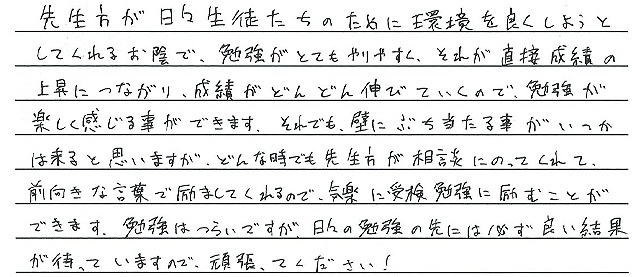 先生方が日々生徒たちのために環境を良くしようと
してくれるお陰で、勉強がとてもやりやすく、それが直接成績の
上昇につながり、成績がどんどん伸びていくので、勉強が
楽しく感じる事ができます。それでも、壁にぶち当たる事がいつか
は来ると思いますが、どんな時でも先生方が相談にのってくれて、
前向きな言葉で励ましてくれるので、気楽に受検勉強に励むことが
できます。勉強はつらいですが、日々の勉強の先には必ず良い結果
が待っていますので、頑張ってください!